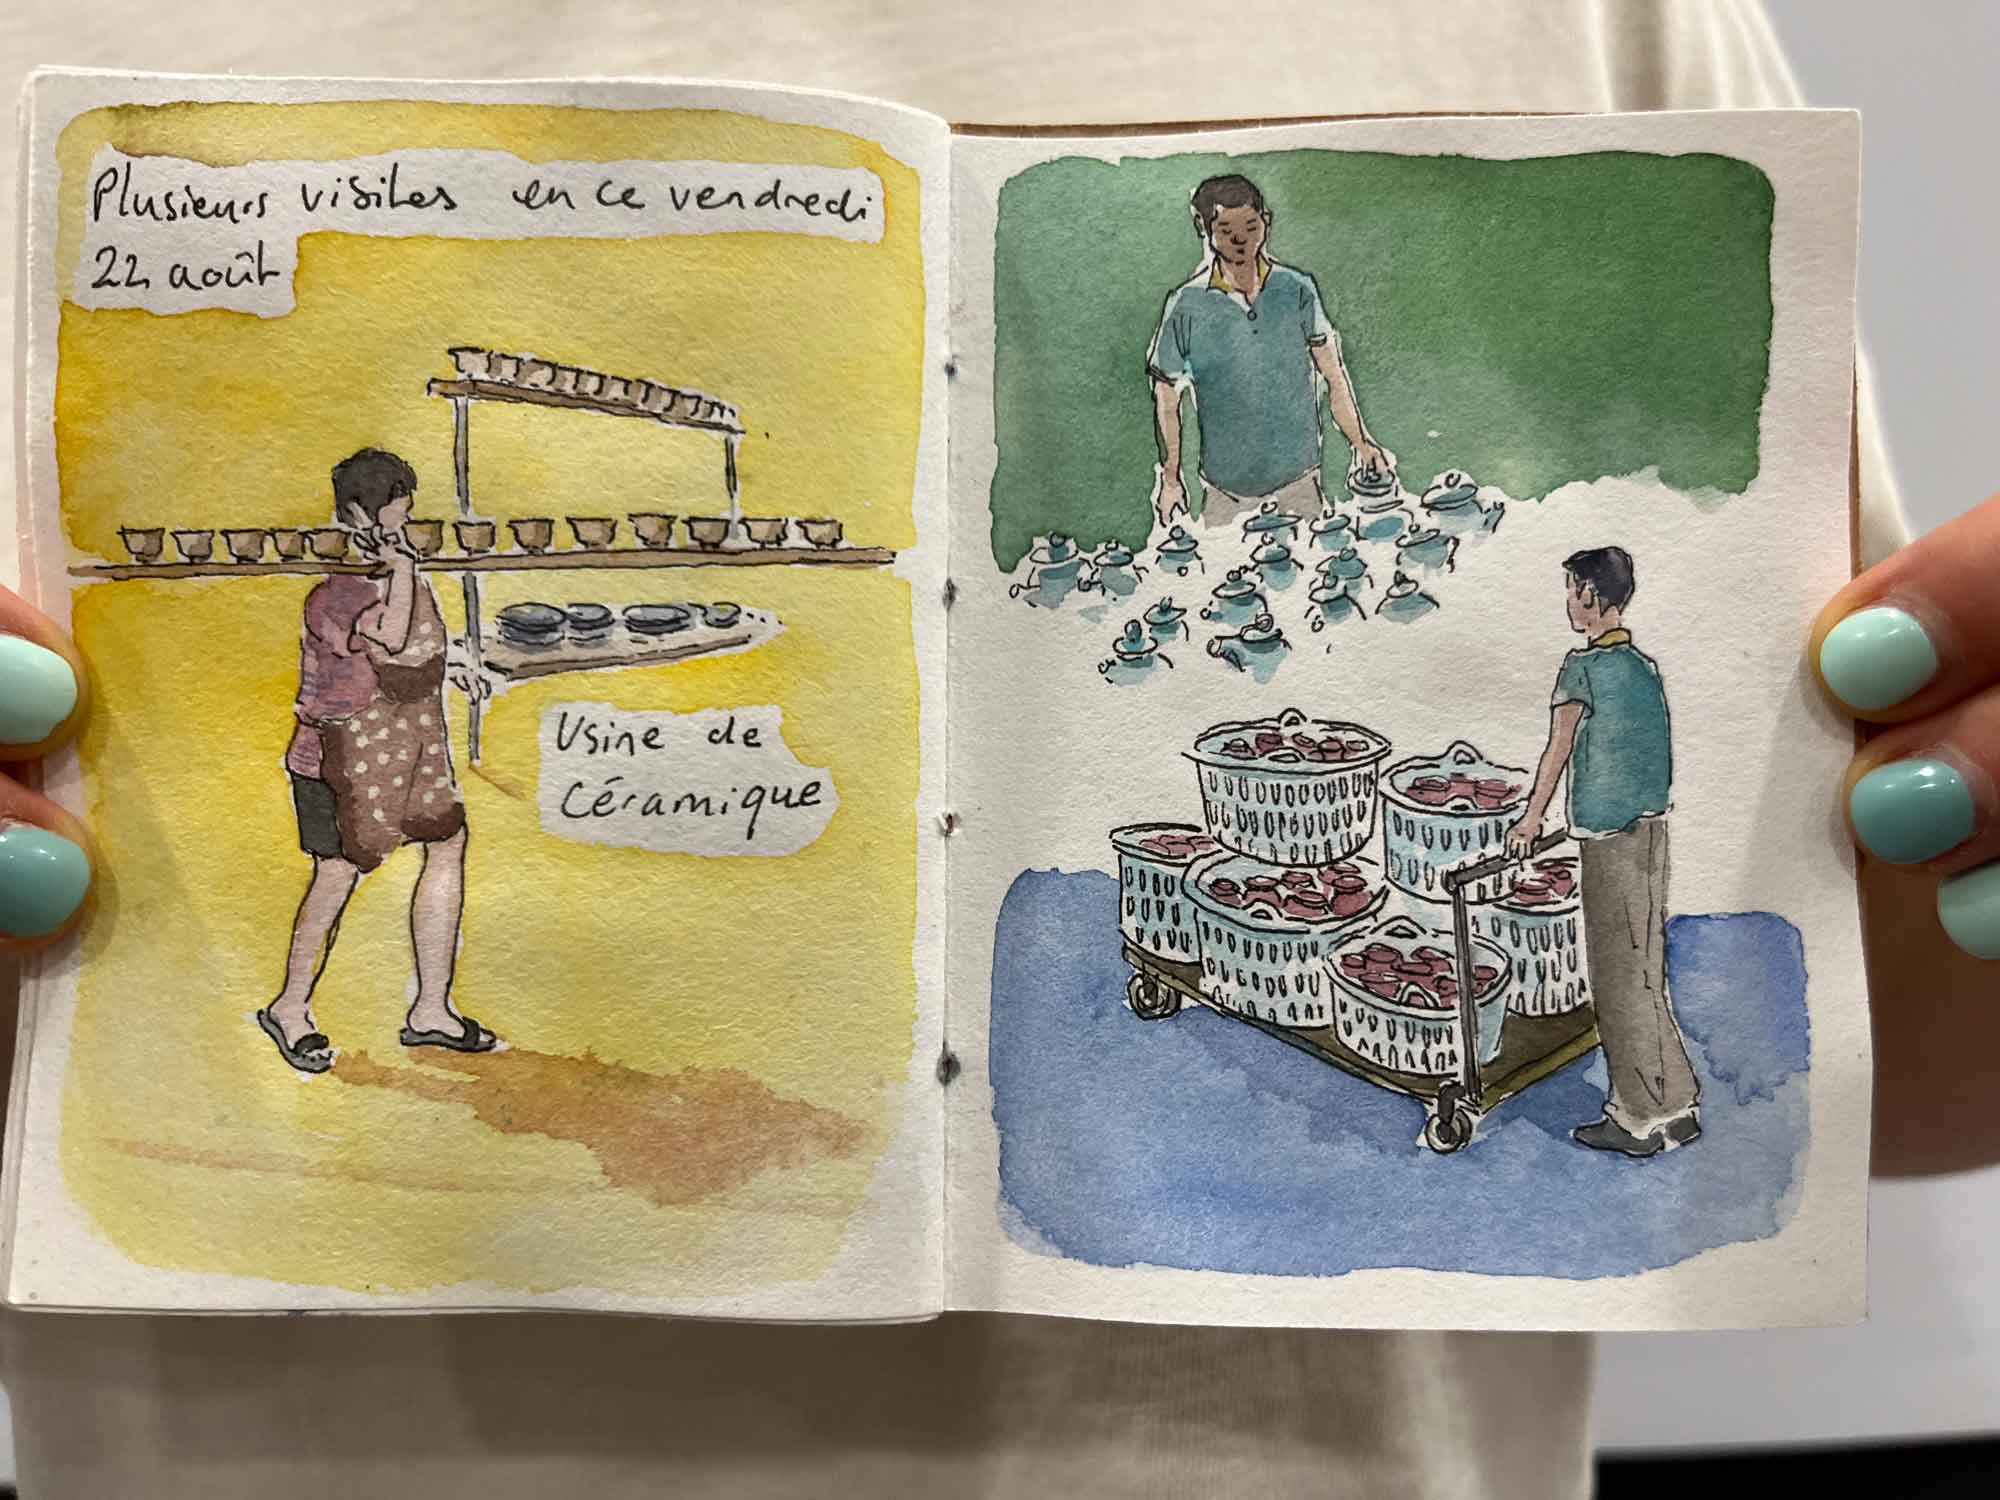 Plusieurs visites en ce vendredi
22 août
Usine de
Céramique